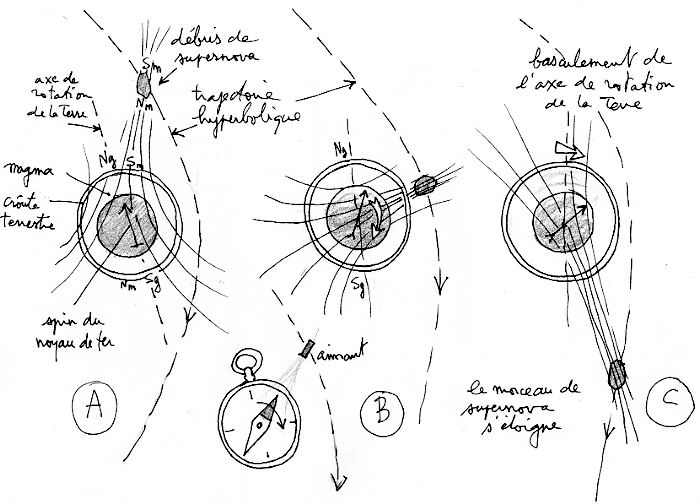 débris de
supernova
Sm
Nm
axe de
rotation
de la Terre
trajectoire
hyperbolique
Ng
Sm
magma
croûte
terrestre
Nm
Sg
spin du
noyau de fer
A
Ng
Sg
aimant
B
basculement de
l'axe de rotation
de la Terre
le morceau de
supernova
s'éloigne
C